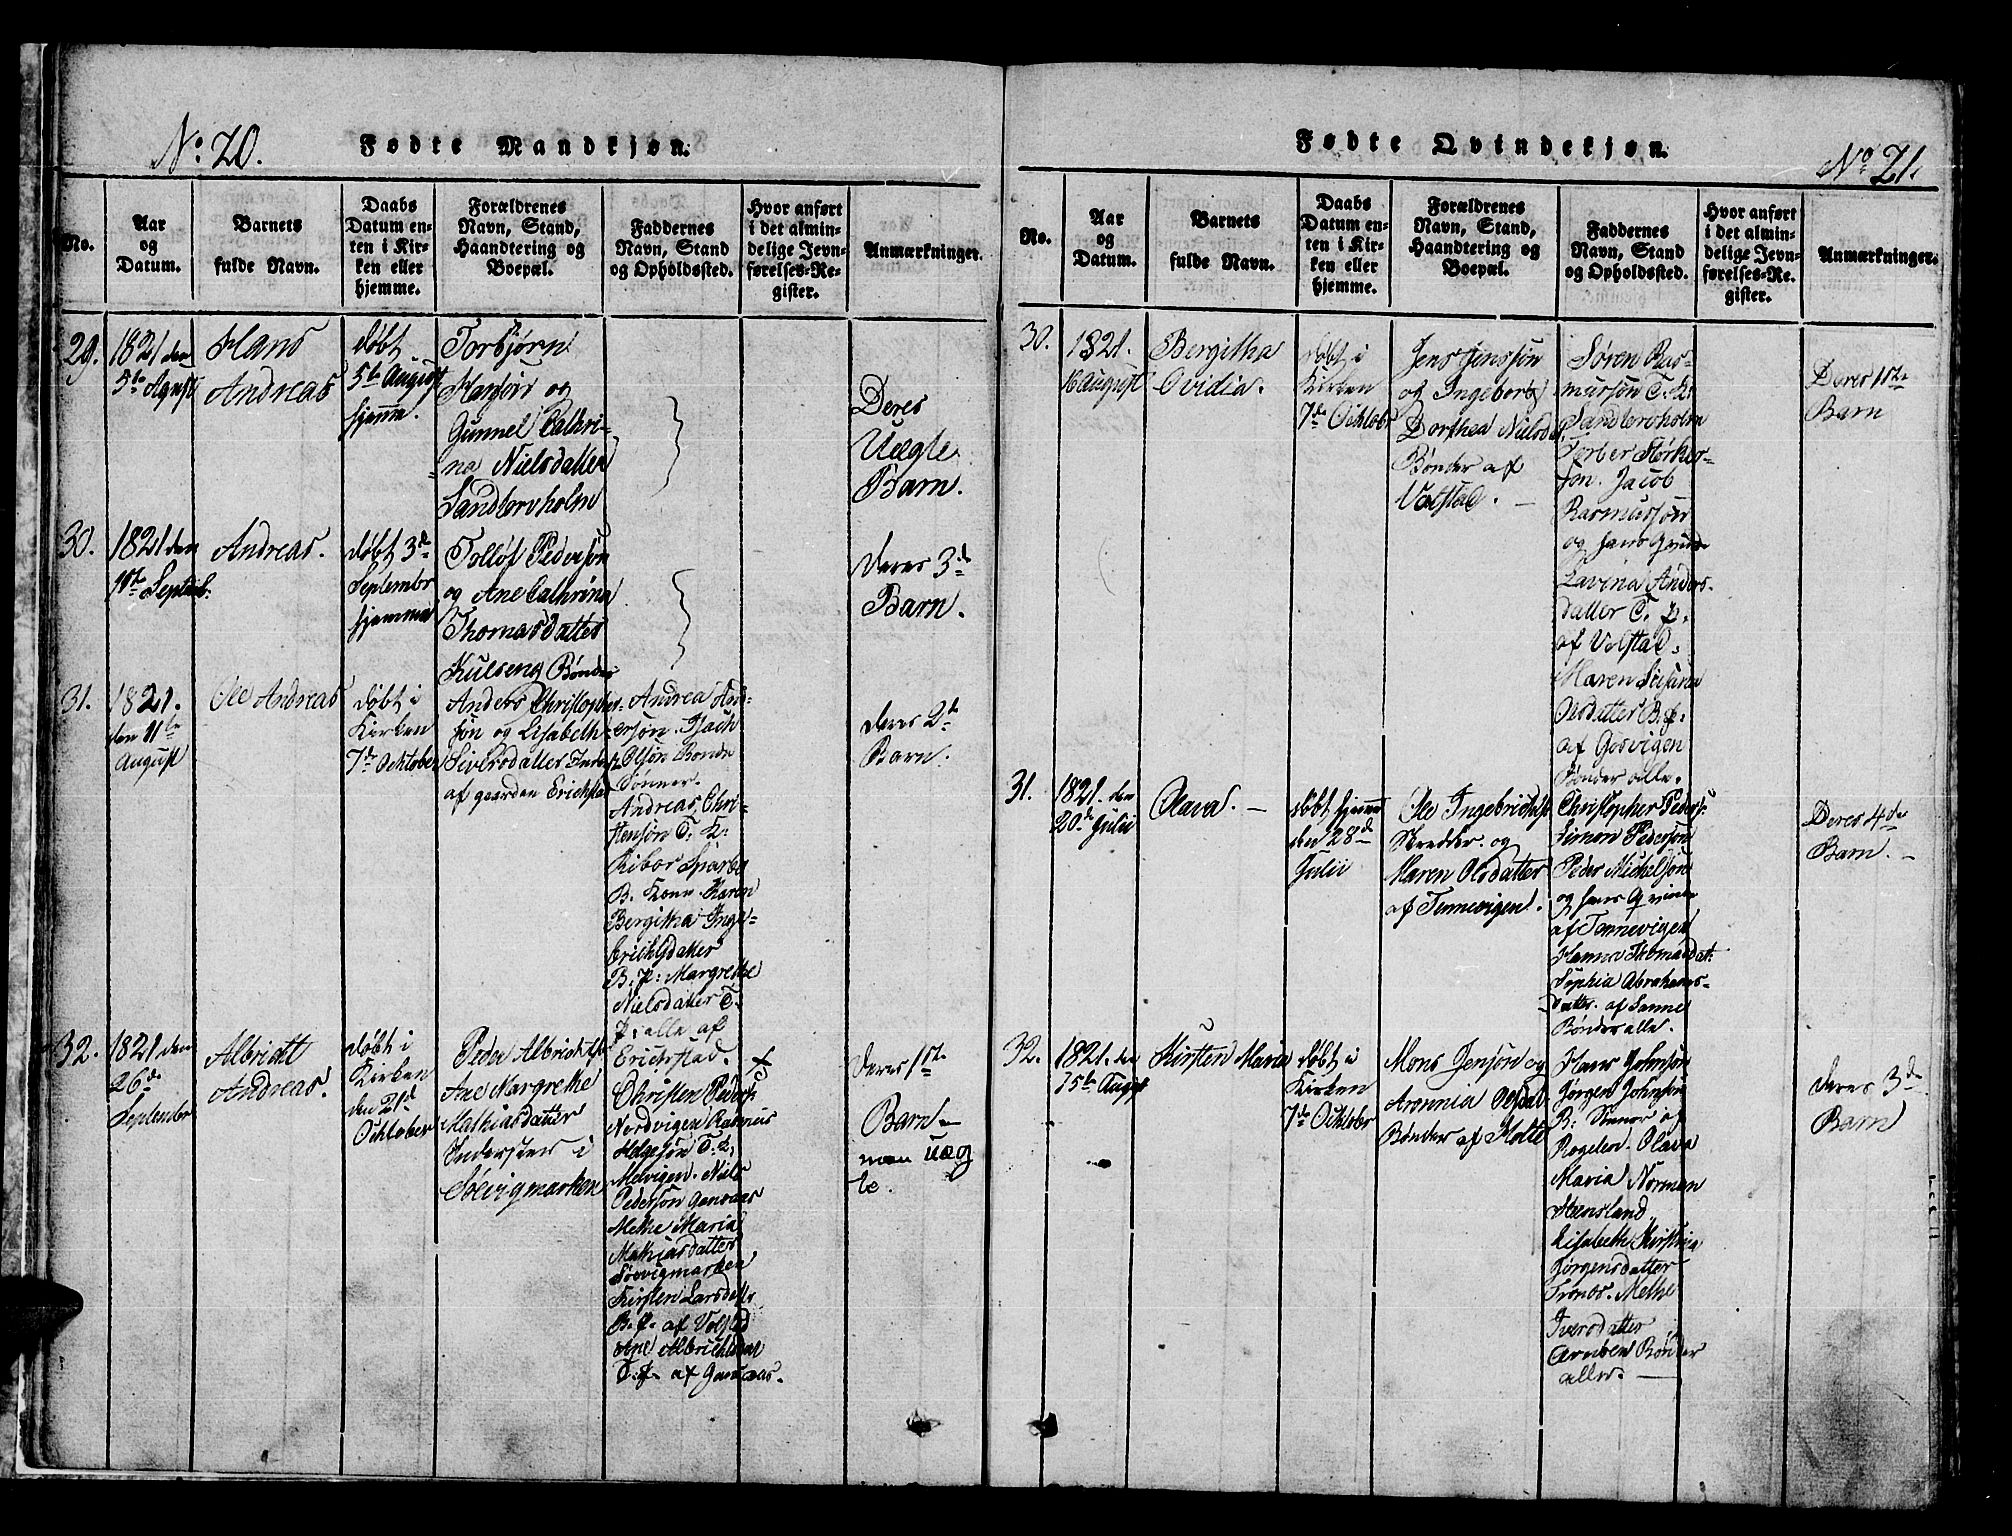 No. 20.
Fødte Mandkjøn.
No.
Aar
og
Datum.
Barnets
fulde Navn.
Daabs
Datum en-
ten i Kir-
ken eller
hjemme.
Forældrenes
Navn, Stand,
Haandtering og
Boepæl.
Faddernes
Navn, Stand
og Opholdssted.
Hvor anført
i det almin-
delige Jevn-
førelses-Re-
gister.
Anmærkninger.
29.
1821 den
5te Agust
Hans
Andreas
døbt
5te August
hjemme.
Torbjørn
Hargört og
Gunnel Cathri-
na Nielsdatter
Sandtervholm
Deres
Uægte
Barn.
30.
1821 den
1ste Septmb.
Andreas.
døbt 3de
Septembr
hjemme
Tollöf Pedersön
og Ane Cathrina
Thomasdatter
Kulseng Bönder
deres 3de
Barn.
31.
1821.
den 11te
August
Ole Andreas
døbt i
Kirken
7de Ochtober
Anders Christopher-
sön og Lisabeth
Siversdatter Inderst
af gaarden Erichstad
Andrea And-
ersön. Isach
Olsön Bonde
Sönner.
Andreas Chri-
stensön T. K.
Ribor Sparbo
B. Kone Karen
Bergitha Inge-
brichtsdatter
B. P: Margrethe
Nielsdatter T.
P: alle af
Erichstad.
deres 2de
Barn.
32.
1821 den
26de
September
Albricht
Andreas.
døbt i
Kirken
den 21de
Ochtober
Peder Albrichts
Ane Margrethe
Mathiasdatter
Inderster i
Sölvigmarken
Christen Peders:
Nordvigen Rasmus
Helgesön T. K:
Molvigen. Niels
Pedersön Gamaas
Methe Maria
Mathiasdatter
Søvvigmarken
Kirsten Larsdatt.
B. P. af Volstad
Ane Albrichtsdat
T. P. af Gamaas.
deres 1ste
Barn
men uæg
te.
Fødte Qvindekjøn.
No 21.
No.
Aar
og
Datum.
Barnets
fulde Navn.
Daabs
Datum en-
ten i Kir-
ken eller
hjemme.
Forældrenes
Navn, Stand,
Haandtering og
Boepæl.
Faddernes
Navn, Stand
og Opholdssted.
Hvor anført
i det almin-
delige Jevn-
førelses-Re-
gister.
Anmærkninger.
30.
1821.
16 August
Bergitha
Ovidia.
døbt i
Kirken
7de Ochtobr
Jens Jenssön
og Ingeborg
Dorthea Nielsd.
Bønder af
Volstad.
Sören Ras-
mussön T. K.
Sandtervholm
Torber Størker-
sen. Jacob
Rasmussön
og hans Qvinde
Lavina Anders-
datter T. P.
af Volstad.
Maren Susana
Olsdatter B. P.
af Gosvigen
Bønder alle.
Deres 1ste
Barn
31.
1821. den
20de Julii
Olava.
døbt hjemme
den 28de
Julii
Ole Ingebrichts
Skredder og
Maren Olsdatter
af Tennevigen.
Christopher Peders:
Simon Pedersön
Peder Michelsön
og hans Qvinde
af Tennevigen
Hanna Thomasdat:
Sophia Abrahams-
datter af Sanne
Bønder alle.
Deres 4de
Barn.
32.
1821. den
15te Augst
Kirsten Maria
døbt i
Kirken
7de Ochtobr
Mons Jensön og
Aronnia Olsdat
Bønder af Holte
Hans Johnsön
Jörgen Johnsön
B: Sönner og
Rogelen. Olava
Maria Norman
Stensland
Lisabeth Kirstina
Jörgensdatter
Tronos. Methe
Iversdatter
Bönder
alle.
deres 3de
Barn